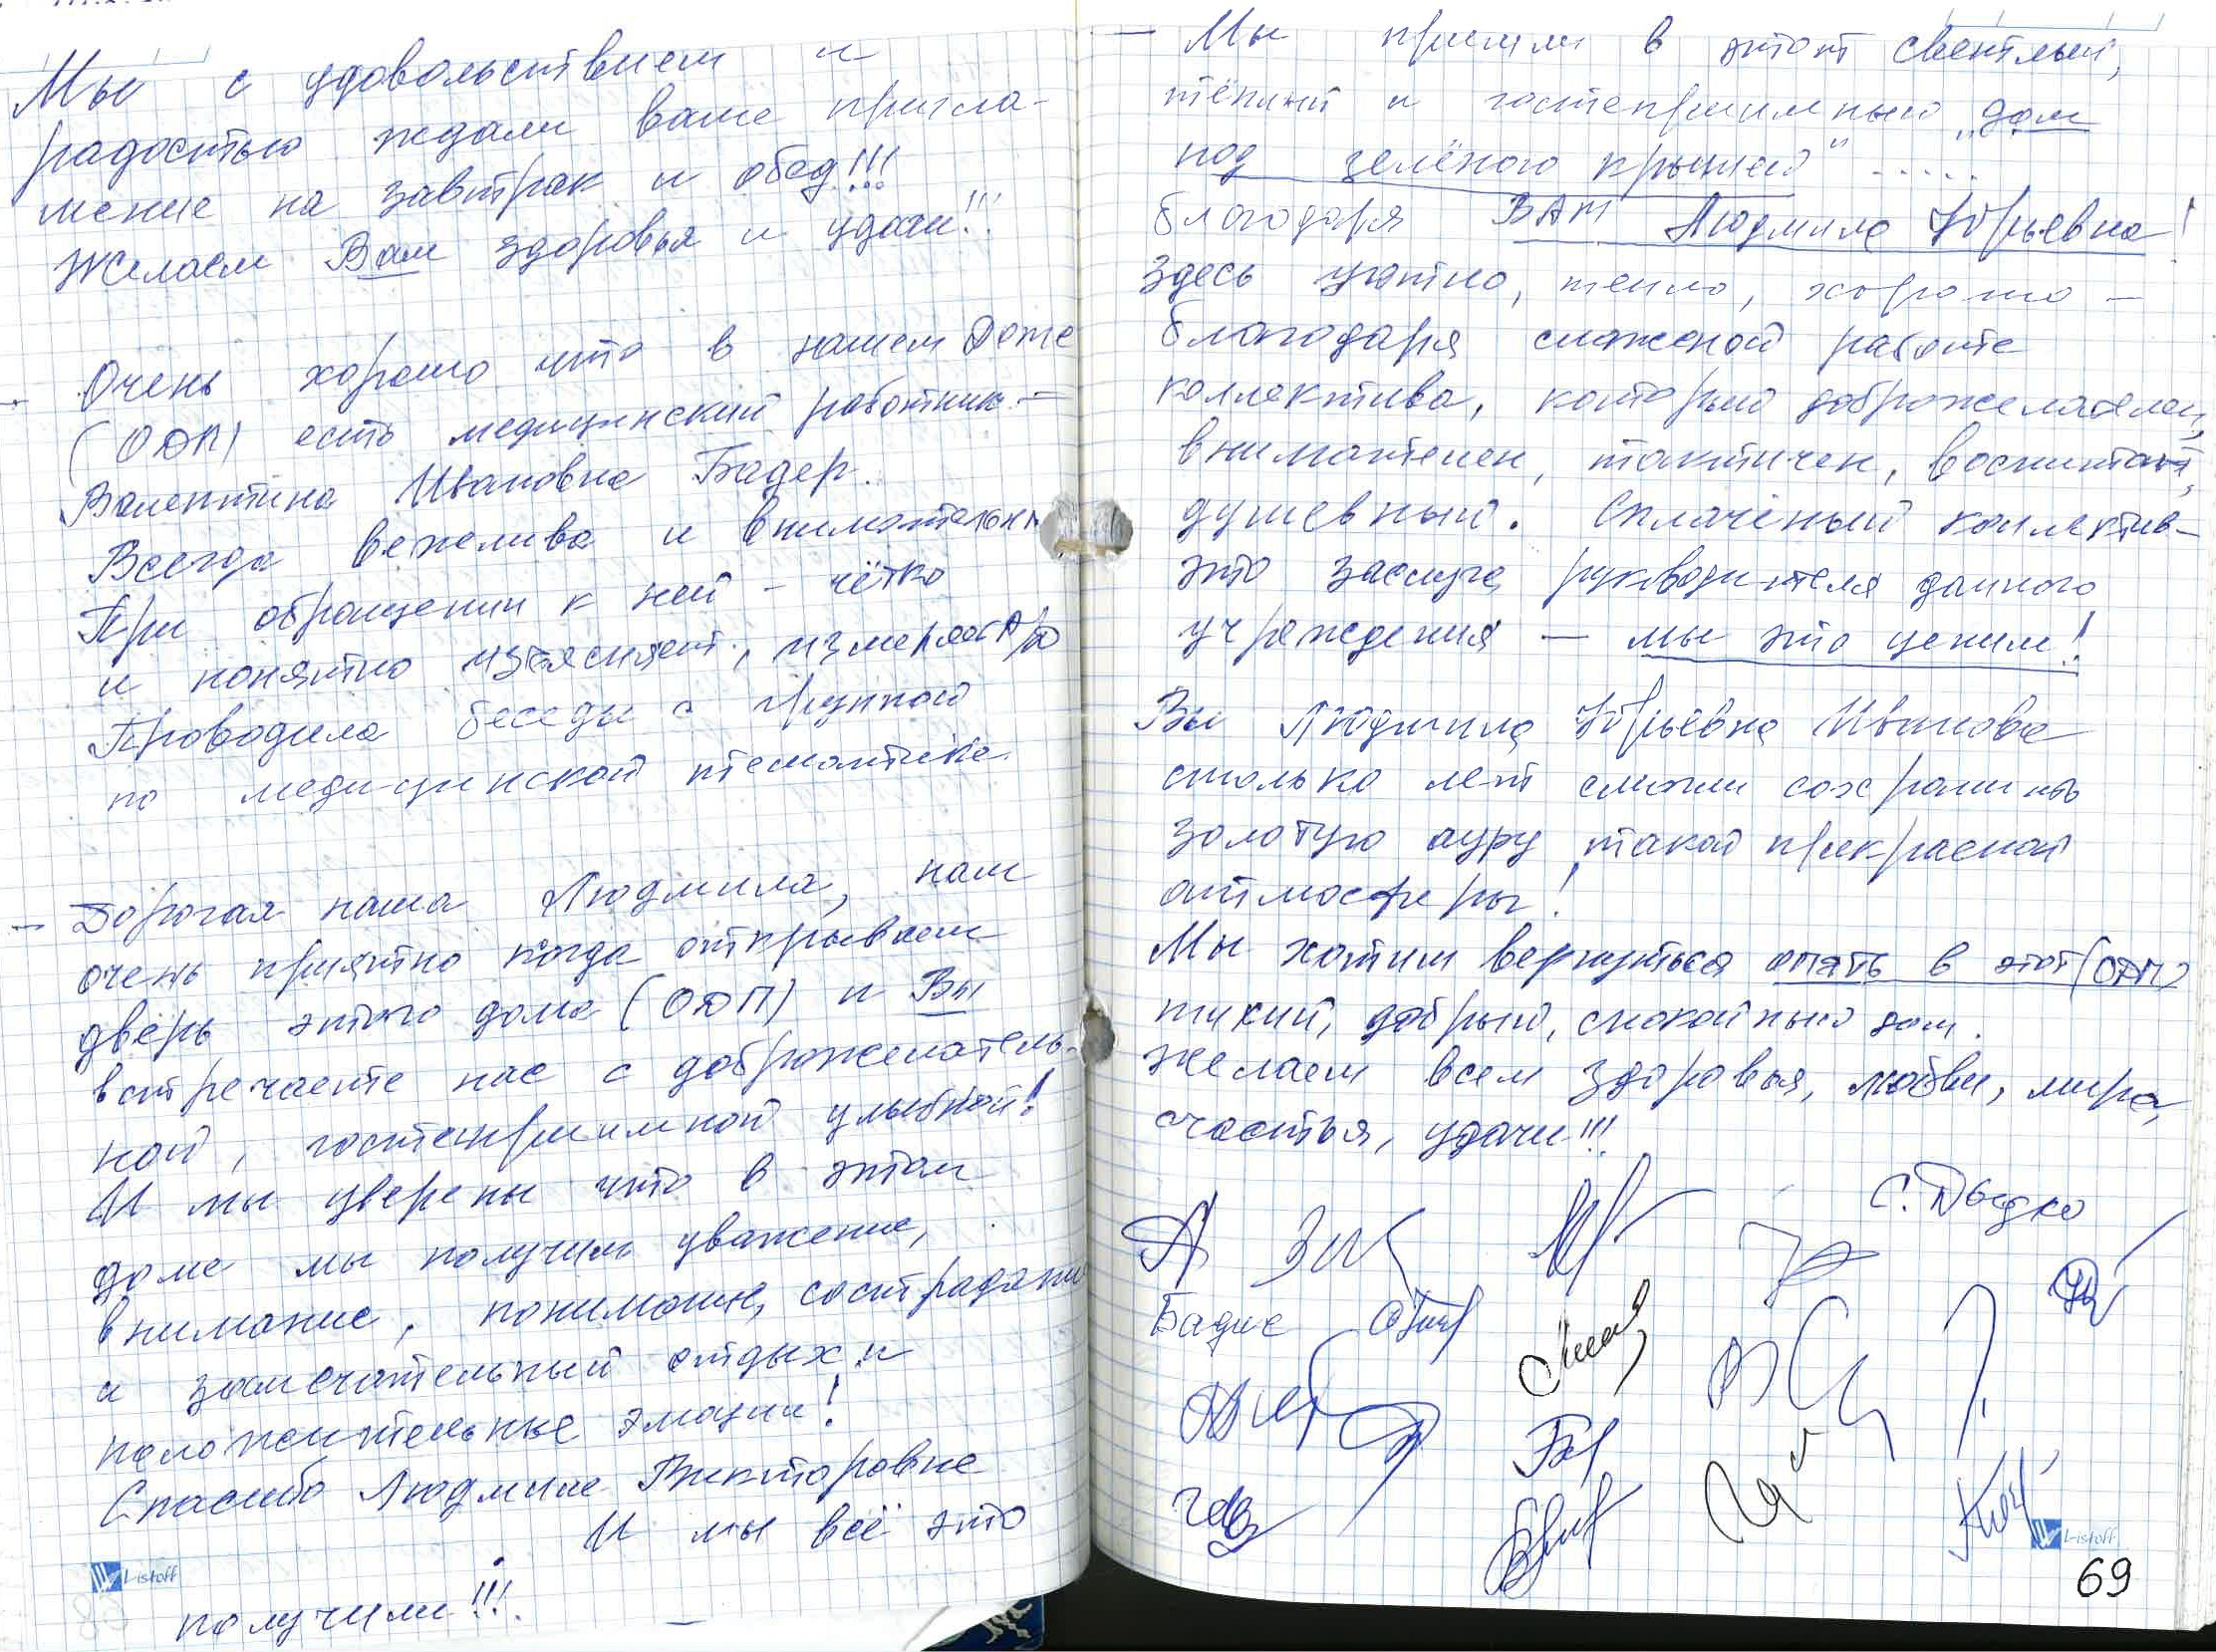 Мы с удовольствием и
радостью ждали ваше пригла-
шение на завтрак и обед!!!
Желаем Вам здоровья и удачи!!!
- Очень хорошо что в нашем Доме
(ОДП) есть медицинский работник -
Валентина Ивановна Бадер.
Всегда вежлива и внимательна
При обращении к ней - чётко
и понятно изъяснит, измеряет А/Д
Проводила беседы с группой
по медицинской тематике.
- Дорогая наша Людмила, нам
очень приятно когда открываем
дверь этого дома (ОДП) и Вы
встречаете нас с доброжелатель-
ной, гостеприимной улыбкой!
И мы уверены что в этом
доме мы получим уважение,
внимание, понимание, сострадание
и замечательный отдых и
положительные эмоции!
Спасибо Людмиле Викторовне
И мы всё это
получили!!!
Listoff
- Мы пришли в этот светлый,
тёплый и гостеприимный „дом
под зелёной крышей" .....
благодаря ВАМ Людмила Юрьевна!
Здесь уютно, тепло, хорошо -
благодаря слаженой работе
коллектива, который доброжелателен,
внимателен, тактичен, воспитан,
душевный. Сплочёный коллектив-
это заслуга руководителя данного
учреждения - мы это ценим!
Вы Людмила Юрьевна Иванова
столько лет смогли сохранить
золотую ауру такой прекрасной
атмосферы!
Мы хотим вернуться опять в этот (ОДП)
тихий, добрый, спокойный дом.
Желаем всем здоровья, любви, мира,
счастья, удачи!!!
С. Дыдко
Listoff
69